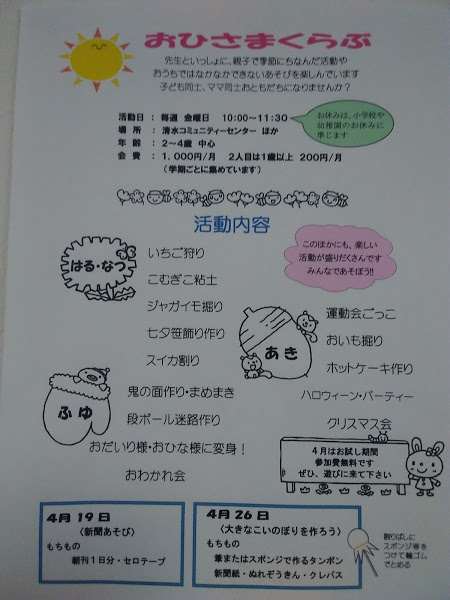 おひさまくらぶ
先生といっしょに、親子で季節にちなんだ活動や
おうちではなかなかできないあそびを楽しんでいます
子ども同士、ママ同士おともだちになりませんか？
活動日 ： 毎週 金曜日 10:00～11:30
場 所 ： 清水コミュニティーセンター ほか
年 齢 ： 2～4歳 中心
会 費 ： 1,000円/月 2人目は1歳以上 200円/月
（学期ごとに集めています）
お休みは、小学校や
幼稚園のお休みに
準じます
活動内容
はる・なつ
いちご狩り
こむぎこ粘土
ジャガイモ掘り
七夕笹飾り作り
スイカ割り
このほかにも、楽しい
活動が盛りだくさんです
みんなであそぼう!!
あき
運動会ごっこ
おいも掘り
ホットケーキ作り
ハロウィーン・パーティー
クリスマス会
ふゆ
鬼の面作り・まめまき
段ボール迷路作り
おだいり様・おひな様に変身！
おわかれ会
4月はお試し期間
参加費無料です
ぜひ、遊びに来て下さい
4月19日
〈新聞あそび〉
もちもの
朝刊1日分・セロテープ
4月26日
〈大きなこいのぼりを作ろう〉
もちもの
筆またはスポンジで作るタンポン
新聞紙・ぬれぞうきん・クレパス
割りばしに
スポンジ等を
つけて輪ゴム
でとめる